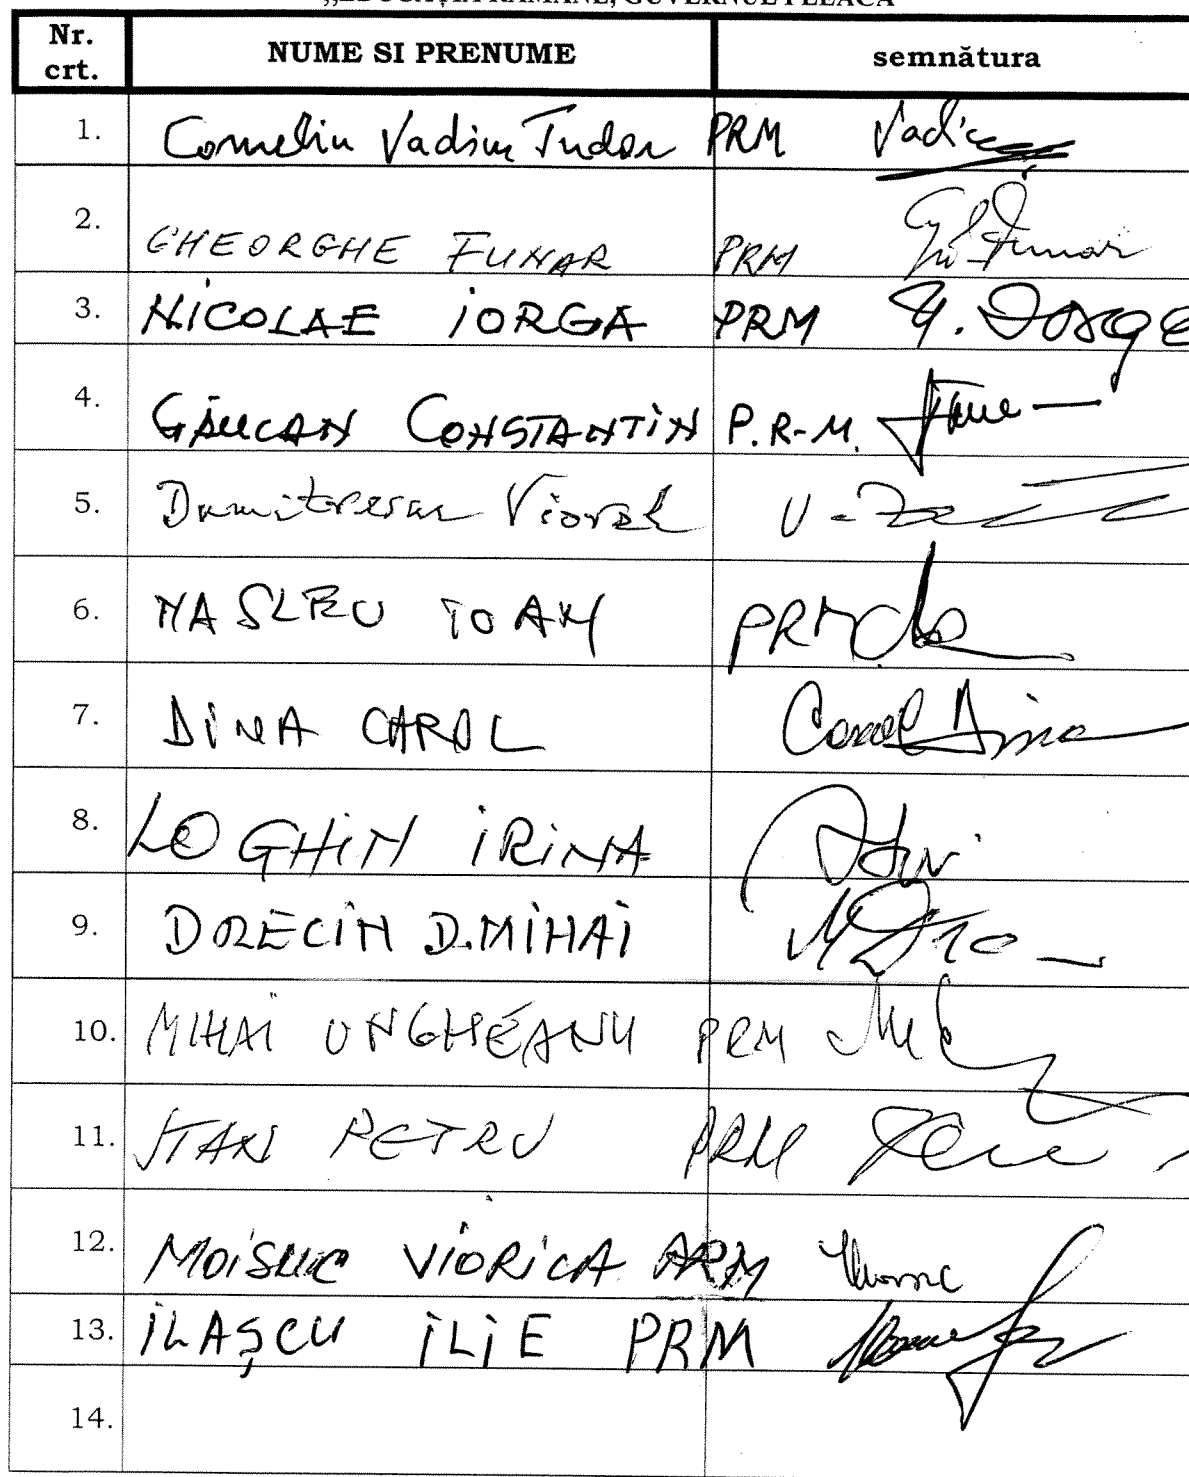 „EDUCAȚIA RĂMÂNE, GUVERNUL PLEACĂ"
Nr. crt. NUME SI PRENUME semnătura
1. Corneliu Vadim Tudor PRM Vadim
2. GHEORGHE FUNAR PRM Gh. Funar
3. NICOLAE IORGA PRM N. Iorga
4. GĂUCAN CONSTANTIN P.R.M.
5. Dumitrescu Viorel
6. IOAN PRM
7. DINA CAROL Carol Dina
8. LOGHIN IRINA
9. D. MIHAI
10. MIHAI UNGHEANU PRM
11. STAN PETRU PRM
12. MOISUC VIORICA PRM
13. ILAȘCU ILIE PRM
14.